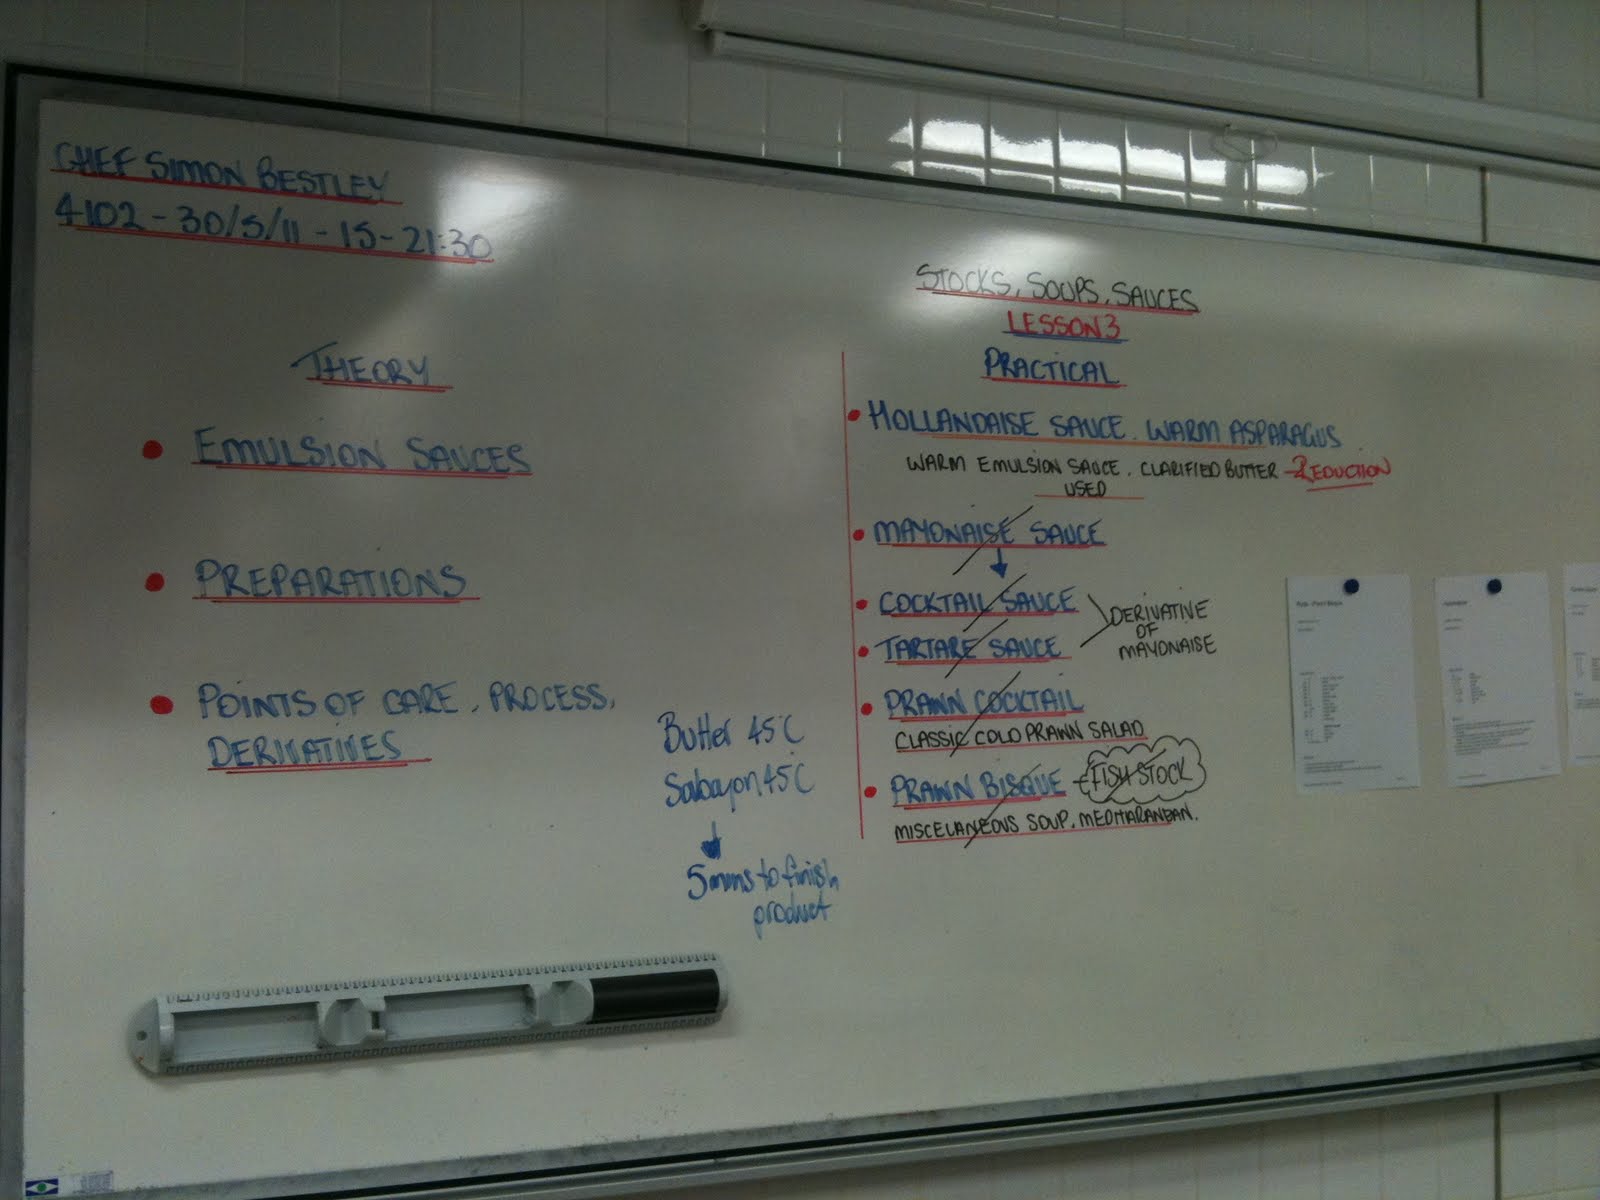 CHEF SIMON BESTLEY
4102 - 30/5/11 - 15 - 21:30
THEORY
• EMULSION SAUCES
• PREPARATIONS
• POINTS OF CARE, PROCESS,
DERIVATIVES
Butter 45°C
Sabayon 45°C
5mins to finish
product
STOCKS, SOUPS, SAUCES
LESSON 3
PRACTICAL
• HOLLANDAISE SAUCE. WARM ASPARAGUS
WARM EMULSION SAUCE. CLARIFIED BUTTER - REDUCTION
USED
• MAYONAISE SAUCE
• COCKTAIL SAUCE
• TARTARE SAUCE
DERIVATIVE
OF
MAYONAISE
• PRAWN COCKTAIL
CLASSIC COLD PRAWN SALAD
• PRAWN BISQUE - FISH STOCK
MISCELANEOUS SOUP. MEDITARANEAN.